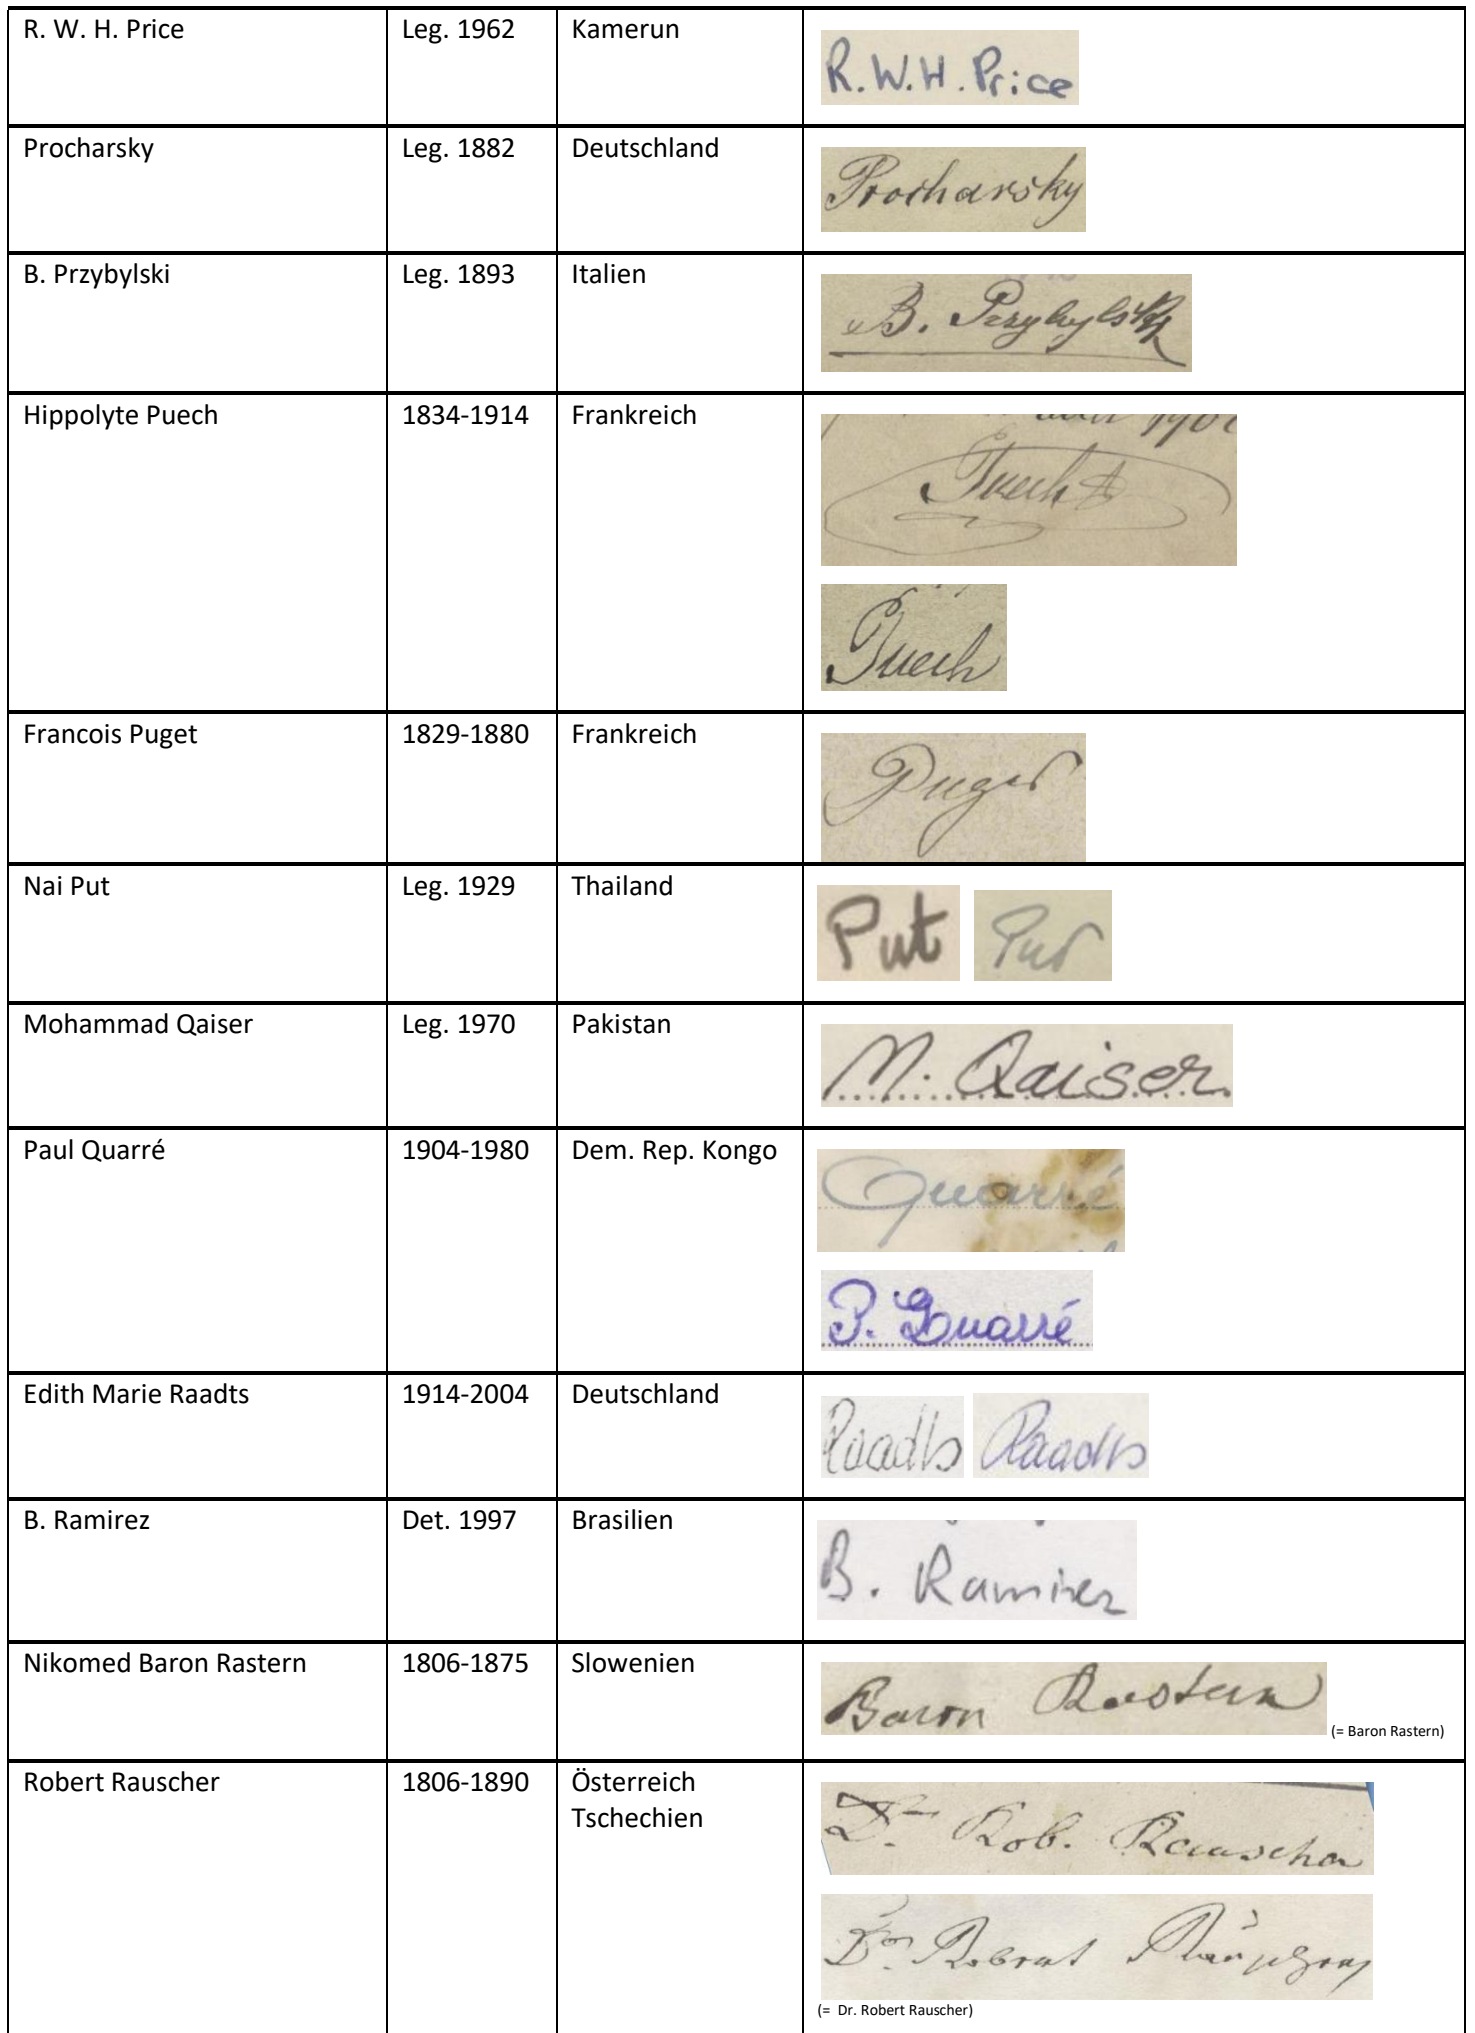 R. W. H. Price Leg. 1962 Kamerun
R.W.H. Price
Procharsky Leg. 1882 Deutschland
Procharsky
B. Przybylski Leg. 1893 Italien
B. Przybylski
Hippolyte Puech 1834-1914 Frankreich
Puech
Puech
Francois Puget 1829-1880 Frankreich
Puget
Nai Put Leg. 1929 Thailand
Put Put
Mohammad Qaiser Leg. 1970 Pakistan
M. Qaiser
Paul Quarré 1904-1980 Dem. Rep. Kongo
Quarré
P. Quarré
Edith Marie Raadts 1914-2004 Deutschland
Raadts Raadts
B. Ramirez Det. 1997 Brasilien
B. Ramirez
Nikomed Baron Rastern 1806-1875 Slowenien
Baron Rastern
(= Baron Rastern)
Robert Rauscher 1806-1890 Österreich
Tschechien
Dr. Rob. Rauscher
Dr. Robert Rauscher
(= Dr. Robert Rauscher)